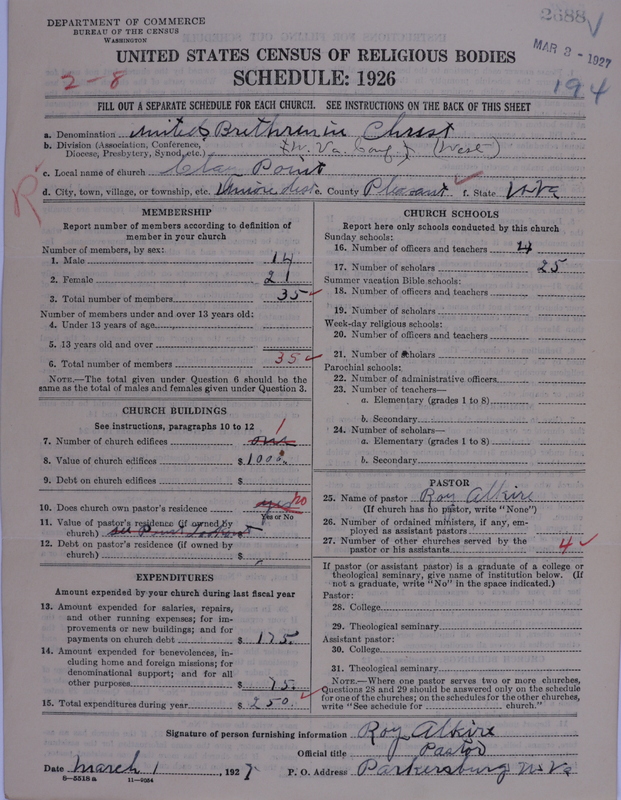 DEPARTMENT OF COMMERCE
BUREAU OF THE CENSUS
WASHINGTON
2688
MAR 3 - 1927
194
UNITED STATES CENSUS OF RELIGIOUS BODIES
SCHEDULE: 1926
2-8
FILL OUT A SEPARATE SCHEDULE FOR EACH CHURCH. SEE INSTRUCTIONS ON THE BACK OF THIS SHEET
a. Denomination United Brethren in Christ
b. Division (Association, Conference, Diocese, Presbytery, Synod, etc.) W. Va. Conf. (West)
c. Local name of church Point
d. City, town, village, or township, etc. dist e. County Pleasant f. State W Va
R
MEMBERSHIP
Report number of members according to definition of member in your church
Number of members, by sex:
1. Male 14
2. Female 21
3. Total number of members 35
Number of members under and over 13 years old:
4. Under 13 years of age
5. 13 years old and over
6. Total number of members 35
NOTE.—The total given under Question 6 should be the same as the total of males and females given under Question 3.
CHURCH BUILDINGS
See instructions, paragraphs 10 to 12
7. Number of church edifices one 1
8. Value of church edifices $ 1000.
9. Debt on church edifices $
10. Does church own pastor's residence yes no
Yes or No
11. Value of pastor's residence (if owned by church) see
12. Debt on pastor's residence (if owned by church) $
EXPENDITURES
Amount expended by your church during last fiscal year
13. Amount expended for salaries, repairs, and other running expenses; for improvements or new buildings; and for payments on church debt $ 175.
14. Amount expended for benevolences, including home and foreign missions; for denominational support; and for all other purposes $ 75.
15. Total expenditures during year $ 250.
CHURCH SCHOOLS
Report here only schools conducted by this church
Sunday schools:
16. Number of officers and teachers 4
17. Number of scholars 25
Summer vacation Bible schools:
18. Number of officers and teachers
19. Number of scholars
Week-day religious schools:
20. Number of officers and teachers
21. Number of scholars
Parochial schools:
22. Number of administrative officers
23. Number of teachers—
a. Elementary (grades 1 to 8)
b. Secondary
24. Number of scholars—
a. Elementary (grades 1 to 8)
b. Secondary
PASTOR
25. Name of pastor Roy Alkire
(If church has no pastor, write "None")
26. Number of ordained ministers, if any, employed as assistant pastors
27. Number of other churches served by the pastor or his assistants 4
If pastor (or assistant pastor) is a graduate of a college or theological seminary, give name of institution below. (If not a graduate, write "No" in the space indicated.)
Pastor:
28. College
29. Theological seminary
Assistant pastor:
30. College
31. Theological seminary
NOTE.—Where one pastor serves two or more churches, Questions 28 and 29 should be answered only on the schedule for one of the churches; on the schedules for the other churches, write "See schedule for church."
Signature of person furnishing information Roy Alkire
Official title Pastor
Date March 1, 1927 P. O. Address Parkersburg W. Va
8-5518 a 11-9034